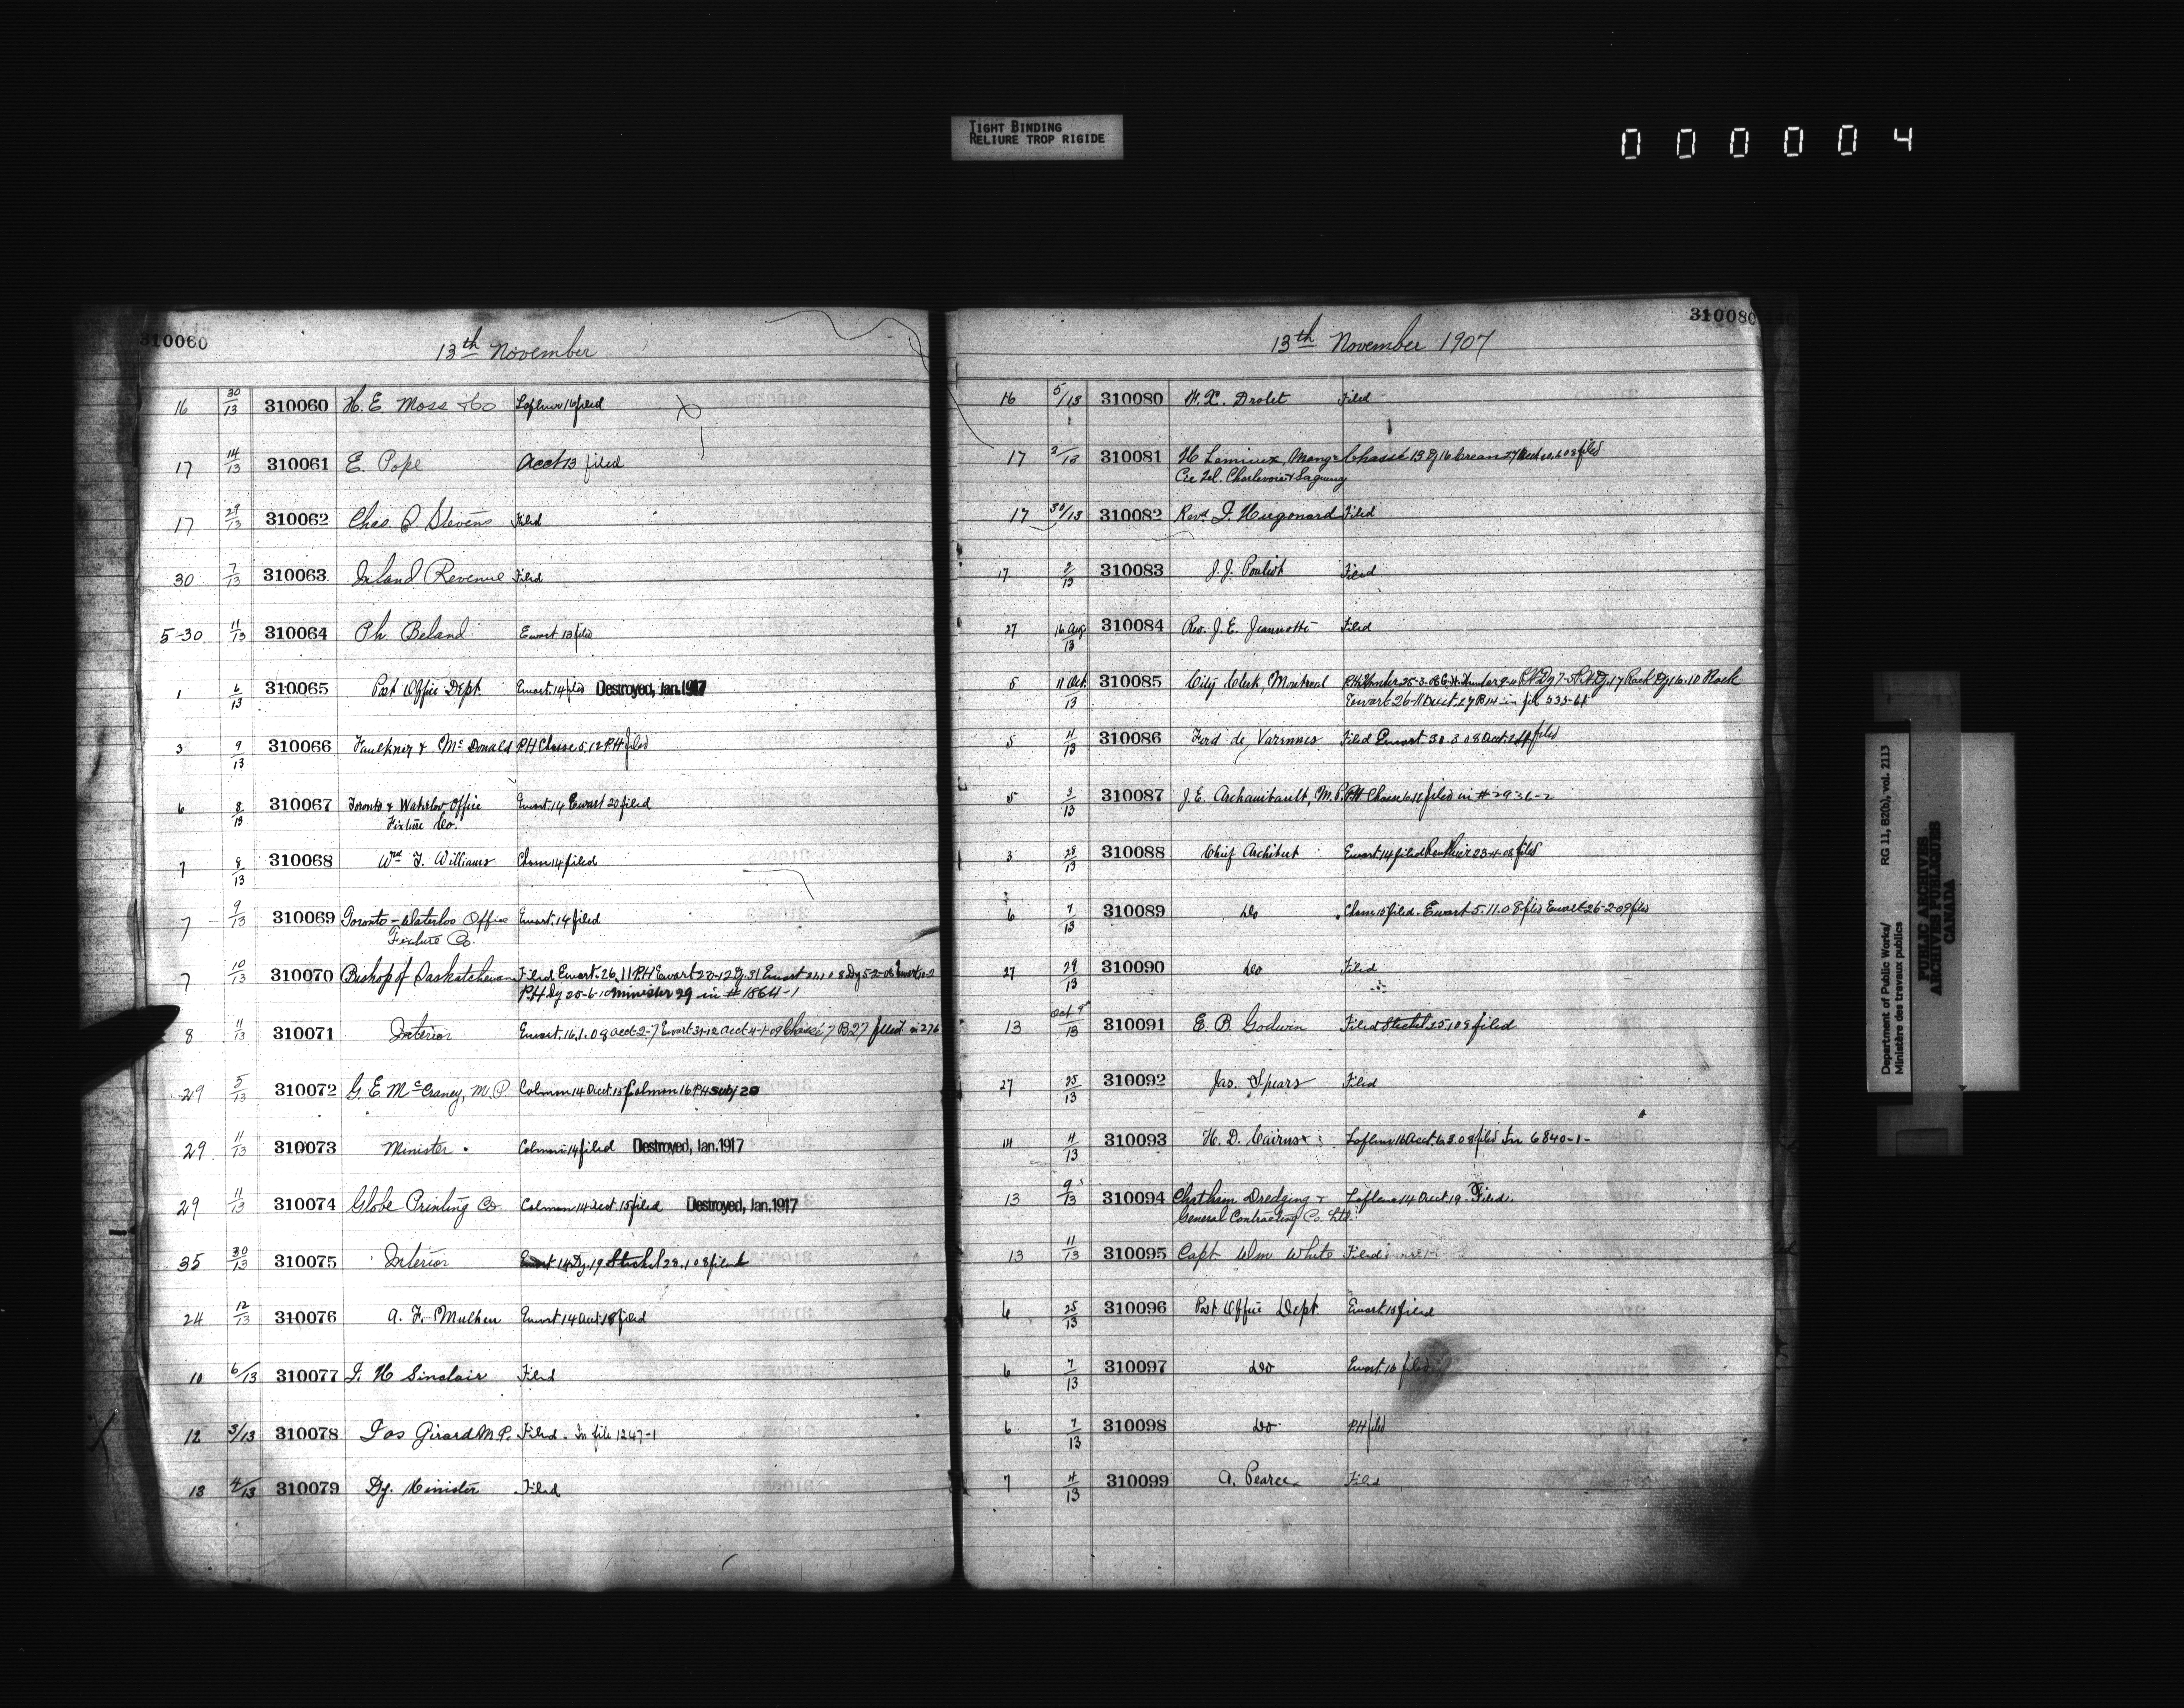 TIGHT BINDING
RELIURE TROP RIGIDE
000004
310060
13th November
16 30/13 310060 H. E. Moss & Co Lafleur 16 filed
17 14/13 310061 E. Pope Acct 13 filed
17 29/13 310062 Chas Stevens Filed
30 7/13 310063 Inland Revenue Filed
5-30 11/13 310064 Ph. Beland Ewart 13 filed
1 6/13 310065 Post Office Dept. Ewart. 14 filed Destroyed, Jan. 1917
3 9/13 310066 Faulkner & McDonald PH Chasse 5.12 PH filed
6 8/13 310067 Toronto & Waterloo Office Ewart. 14 Ewart 20 filed
Fixture Co.
7 8/13 310068 Wm J. Williams Cham 14 filed
7 9/13 310069 Toronto-Waterloo Office Ewart. 14 filed
Fixture Co.
7 10/13 310070 Bishop of Saskatchewan Filed Ewart. 26.11 PH Ewart
PH Dy 25-6-10 Minister 29 in # 1864-1
8 11/13 310071 Interior Ewart. 16.1.08 acct 2-7 Ewart 31-12 acct 4-1-09 Chassé 7 B27 filed in 276
29 5/13 310072 G. E. McCraney, M.P. Colman 14 acct. 15 Colman 16 PH Subj 20
29 11/13 310073 Minister. Colman 14 filed Destroyed, Jan. 1917
29 11/13 310074 Globe Printing Co. Colman 14 acct. 15 filed Destroyed, Jan. 1917
35 30/13 310075 Interior Ewart 14 Dy. 19 Stickel 28.1 08 filed
24 12/13 310076 A. F. Ewart 14 acct. 18 filed
10 6/13 310077 J. H Sinclair Filed
12 3/13 310078 Jos Girard M.P. Filed. In file 1247-1
13 4/13 310079 Dy. Minister Filed
310080
13th November 1907
16 5/13 310080 Drolet Filed
17 2/13 310081 H Lemieux, Mang. Chassé 13 Dy 16 filed
Cie Tel. Charlevoix & Saguenay
17 30/13 310082 Revd J. Hugonard Filed
17 2/13 310083 J. J. Pouliot Filed
27 16 Aug/13 310084 Rev. J. E. Jeannotte Filed
5 11 Oct./13 310085 City Clerk, Montreal
Ewart 26-11 acct. 17 B14 in file 335-61
5 11/13 310086 Ferd de Varennes Filed Ewart. 30.3.08 acct. filed
5 8/13 310087 J. E. Archambault, M.P. PH Chasse filed in # 2936-2
3 28/13 310088 Chief Architect Ewart. 14 filed 23-4-08 filed
6 7/13 310089 Do Cham 15 filed. Ewart 5.11.08 filed Ewart 26-2-09 filed
27 29/13 310090 Do Filed
13 Oct 9/13 310091 E. B Godwin Filed Stickel filed
27 25/13 310092 Jas. Spears Filed
14 4/13 310093 H. D. Cairns Lafleur 16 acct. filed In 6840-1-
13 9/13 310094 Chatham Dredging & Lafleur 14 acct. 19. Filed.
General Contracting Co. Ltd.
13 11/13 310095 Capt Wm White Filed
6 25/13 310096 Post Office Dept. Ewart. 15 filed
6 7/13 310097 Do Ewart. 16 filed
6 7/13 310098 Do. PH filed
7 4/13 310099 A. Pearce Filed
Department of Public Works/ RG 11, B2(b), vol. 2113
Ministère des travaux publics
PUBLIC ARCHIVES
ARCHIVES PUBLIQUES
CANADA